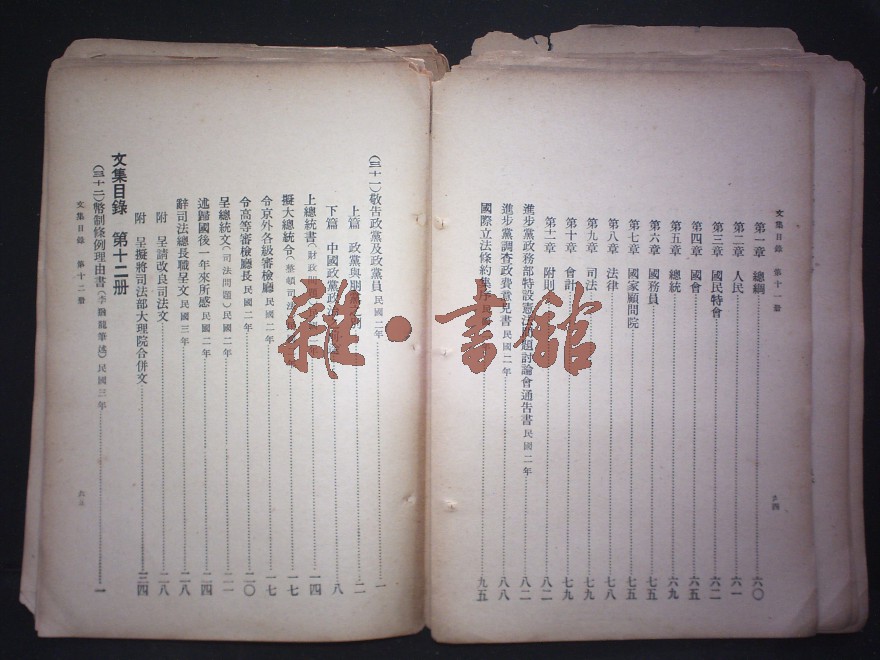 文集目錄 第十一册
第一章 總綱 六〇
第二章 人民 六一
第三章 國民特會 六二
第四章 國會 六五
第五章 總統 六九
第六章 國務員 七五
第七章 國家顧問院 七五
第八章 法律 七八
第九章 司法 七九
第十章 會計 七九
第十一章 附則 八二
進步黨政務部特設憲法問題討論會通告書 民國二年 八二
進步黨調查政費意見書 民國二年 八八
國際立法條約集序 民國 九五
(三十一)敬告政黨及政黨員 民國二年 一
上篇 政黨與朋黨之別 二
下篇 中國政黨政 八
上總統書(財政問題) 一四
擬大總統令(整頓司法 一七
令京外各級審檢廳 民國二年 一七
令高等審檢廳長 民國二年 二〇
呈總統文(司法問題)民國二年 二一
述歸國後一年來所感 民國二年 二四
辭司法總長職呈文 民國三年 二八
附 呈請改良司法文 二八
附 呈擬將司法部大理院合併文 三四
文集目錄 第十二册
(三十二)幣制條例理由書(李猶龍筆述)民國三年 一
文集目錄 第十二册
雜·書館